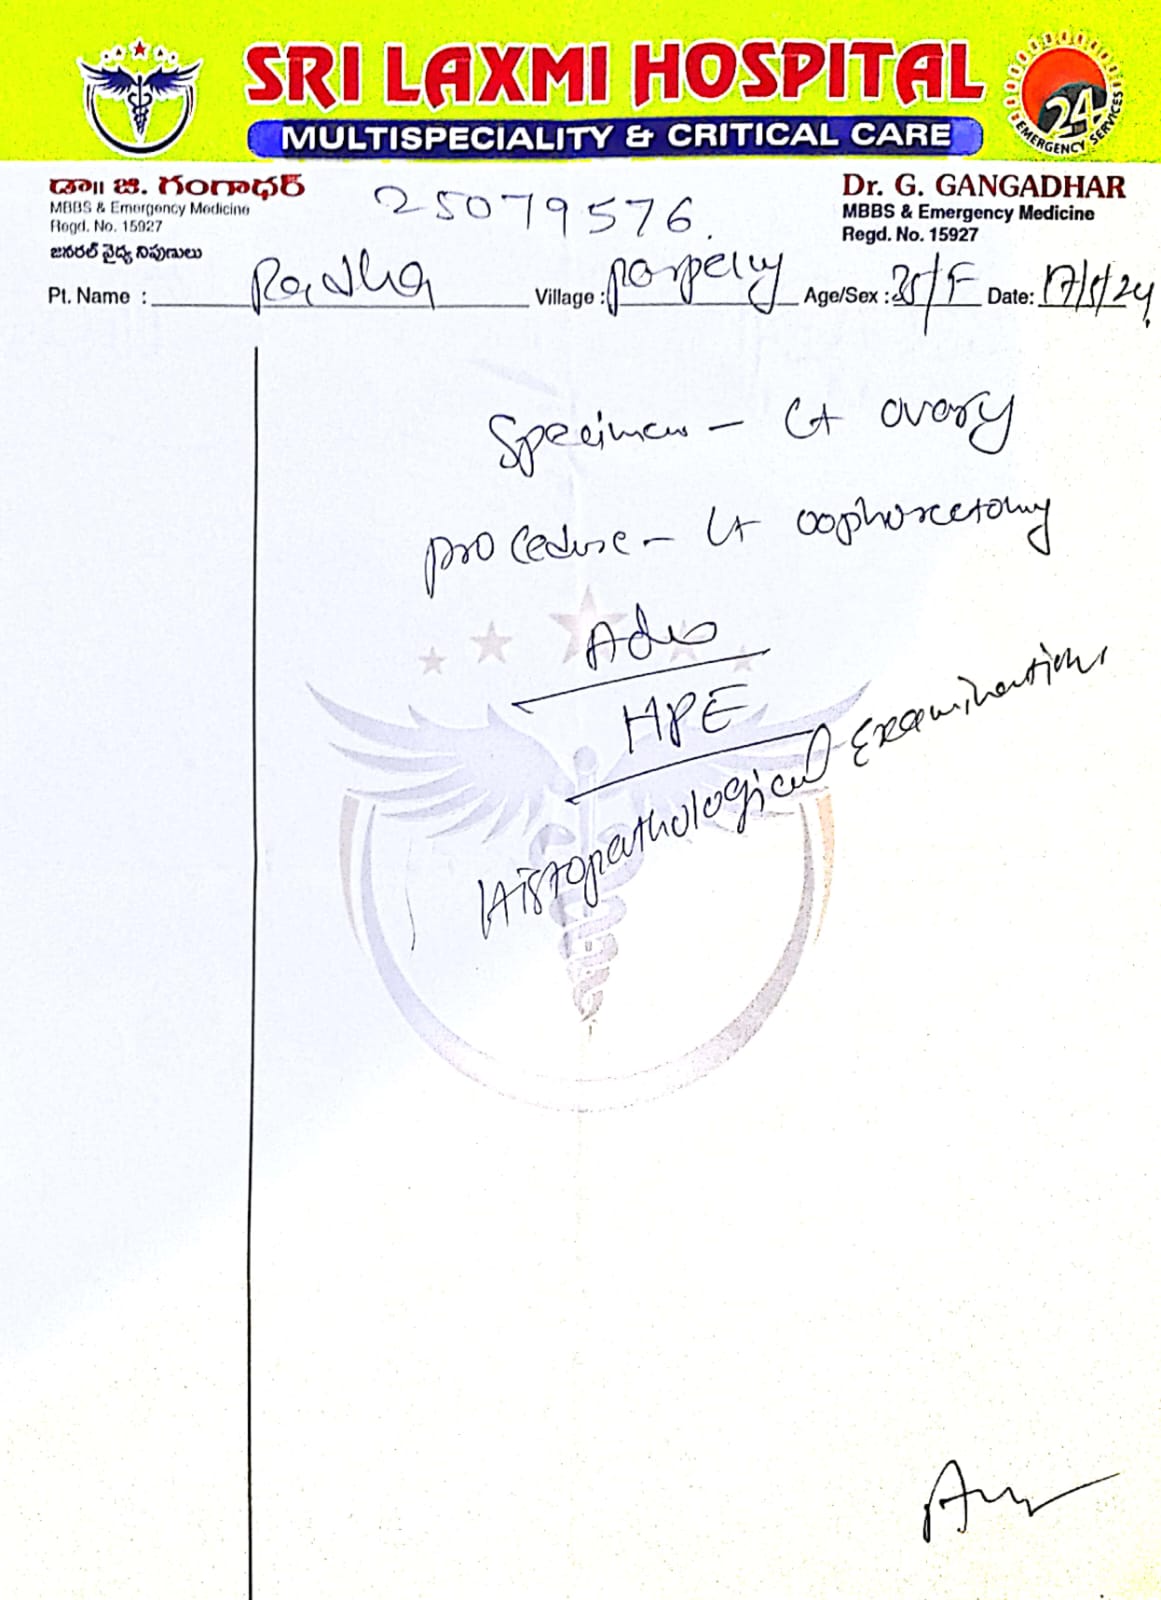 SRI LAXMI HOSPITAL
MULTISPECIALITY & CRITICAL CARE
24
EMERGENCY SERVICES
డా॥ జి. గంగాధర్
MBBS & Emergency Medicine
Regd. No. 15927
జనరల్ వైద్య నిపుణులు
25079576.
Dr. G. GANGADHAR
MBBS & Emergency Medicine
Regd. No. 15927
Pt. Name : Radha Village : Age/Sex : 35/F Date: 17/5/24
Specimen - Lt ovary
procedure - Lt oophorectomy
Adv
HPE
Histopathological Examination